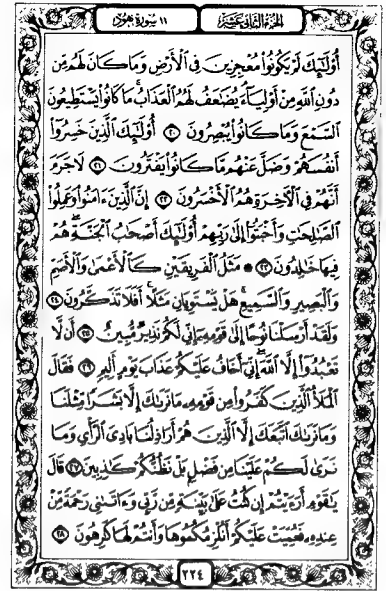 الجزء الثاني عشر ١١ سورة هود
أُو۟لَٰٓئِكَ لَمْ يَكُونُوا۟ مُعْجِزِينَ فِى ٱلْأَرْضِ وَمَا كَانَ لَهُم مِّن
دُونِ ٱللَّهِ مِنْ أَوْلِيَآءَ يُضَٰعَفُ لَهُمُ ٱلْعَذَابُ مَا كَانُوا۟ يَسْتَطِيعُونَ
ٱلسَّمْعَ وَمَا كَانُوا۟ يُبْصِرُونَ ٢٠ أُو۟لَٰٓئِكَ ٱلَّذِينَ خَسِرُوٓا۟
أَنفُسَهُمْ وَضَلَّ عَنْهُم مَّا كَانُوا۟ يَفْتَرُونَ ٢١ لَا جَرَمَ
أَنَّهُمْ فِى ٱلْءَاخِرَةِ هُمُ ٱلْأَخْسَرُونَ ٢٢ إِنَّ ٱلَّذِينَ ءَامَنُوا۟ وَعَمِلُوا۟
ٱلصَّٰلِحَٰتِ وَأَخْبَتُوٓا۟ إِلَىٰ رَبِّهِمْ أُو۟لَٰٓئِكَ أَصْحَٰبُ ٱلْجَنَّةِ هُمْ
فِيهَا خَٰلِدُونَ ٢٣ مَثَلُ ٱلْفَرِيقَيْنِ كَٱلْأَعْمَىٰ وَٱلْأَصَمِّ
وَٱلْبَصِيرِ وَٱلسَّمِيعِ هَلْ يَسْتَوِيَانِ مَثَلًا أَفَلَا تَذَكَّرُونَ ٢٤
وَلَقَدْ أَرْسَلْنَا نُوحًا إِلَىٰ قَوْمِهِۦٓ إِنِّى لَكُمْ نَذِيرٌ مُّبِينٌ ٢٥ أَن لَّا
تَعْبُدُوٓا۟ إِلَّا ٱللَّهَ إِنِّىٓ أَخَافُ عَلَيْكُمْ عَذَابَ يَوْمٍ أَلِيمٍ ٢٦ فَقَالَ
ٱلْمَلَأُ ٱلَّذِينَ كَفَرُوا۟ مِن قَوْمِهِۦ مَا نَرَىٰكَ إِلَّا بَشَرًا مِّثْلَنَا
وَمَا نَرَىٰكَ ٱتَّبَعَكَ إِلَّا ٱلَّذِينَ هُمْ أَرَاذِلُنَا بَادِىَ ٱلرَّأْىِ وَمَا
نَرَىٰ لَكُمْ عَلَيْنَا مِن فَضْلٍۭ بَلْ نَظُنُّكُمْ كَٰذِبِينَ ٢٧ قَالَ
يَٰقَوْمِ أَرَءَيْتُمْ إِن كُنتُ عَلَىٰ بَيِّنَةٍ مِّن رَّبِّى وَءَاتَىٰنِى رَحْمَةً مِّنْ
عِندِهِۦ فَعُمِّيَتْ عَلَيْكُمْ أَنُلْزِمُكُمُوهَا وَأَنتُمْ لَهَا كَٰرِهُونَ ٢٨
٢٢٤